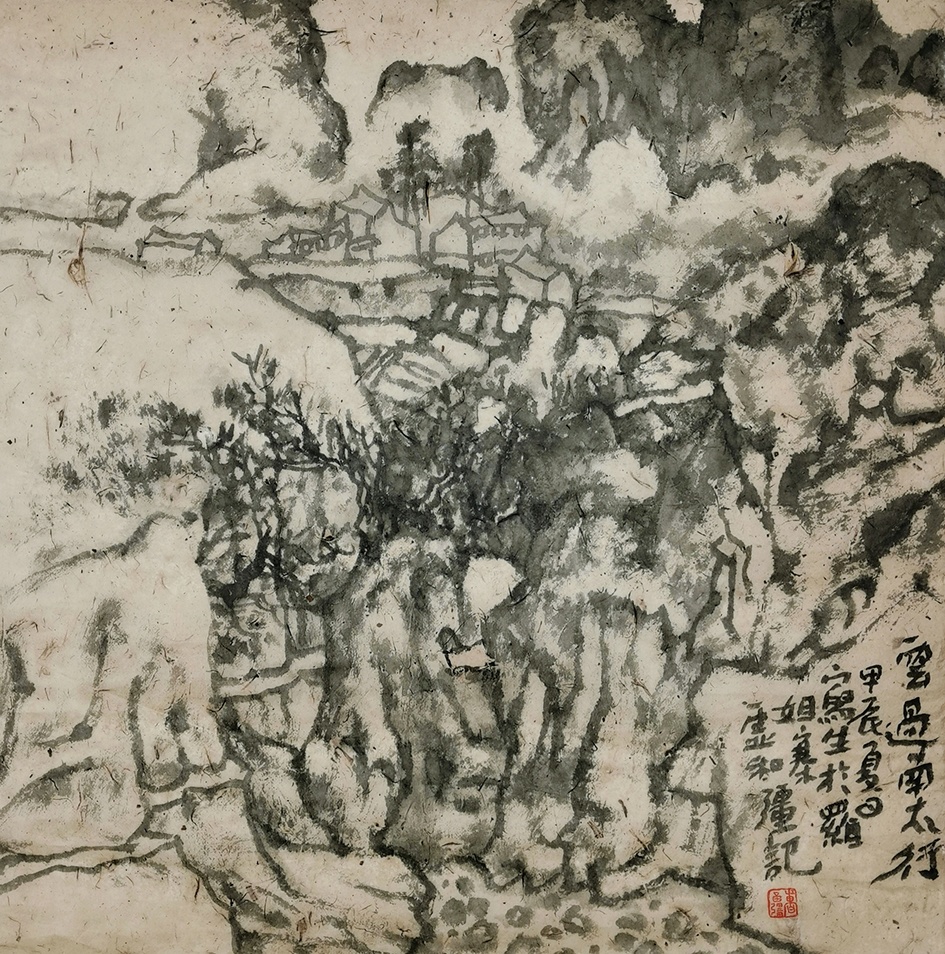 雲過南太行
甲辰夏日
寫生於羅
姐寨
虛和彊記